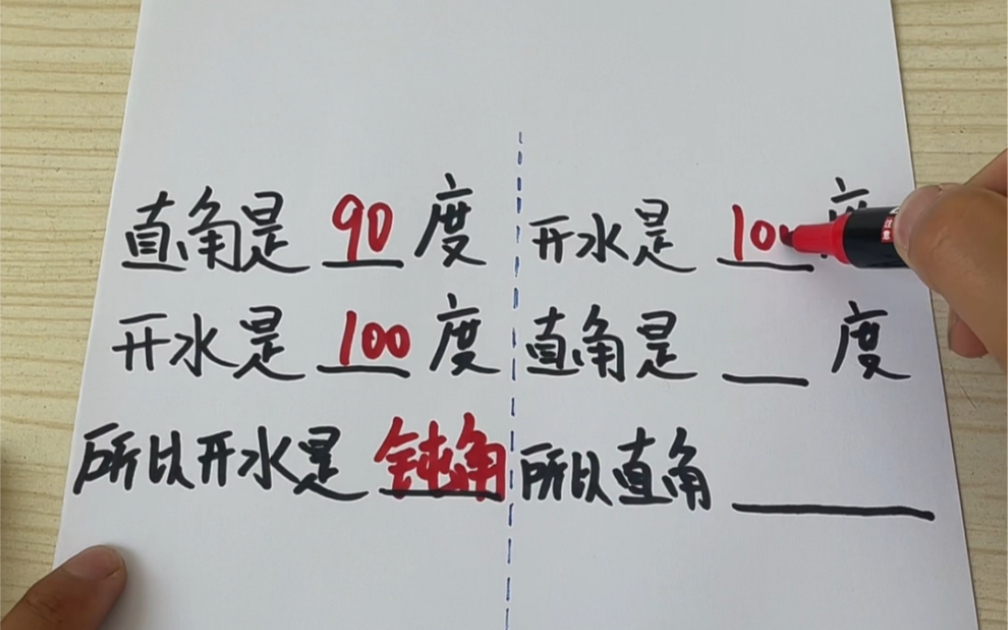 直角是 90 度
开水是 100 度
所以开水是 钝角
开水是 10
直角是 __ 度
所以直角 ____